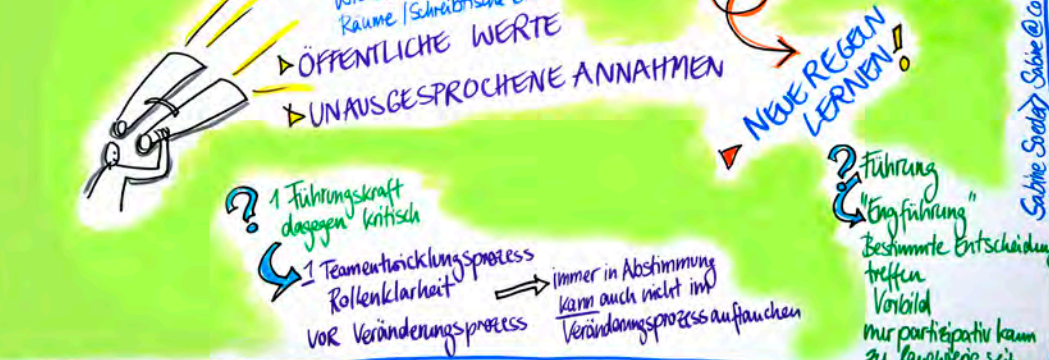 Räume / Schreibtische
ÖFFENTLICHE WERTE
UNAUSGESPROCHENE ANNAHMEN
NEUE REGELN
LERNEN!
? 1 Führungskraft
dagegen kritisch
1 Teamentwicklungsprozess
Rollenklarheit
VOR Veränderungsprozess
immer in Abstimmung
kann auch nicht im
Veränderungsprozess auftauchen
? Führung
"Engführung"
Bestimmte Entscheidung
treffen
Vorbild
nur partizipativ kann
zu langwierig sein
Sabine Soeder